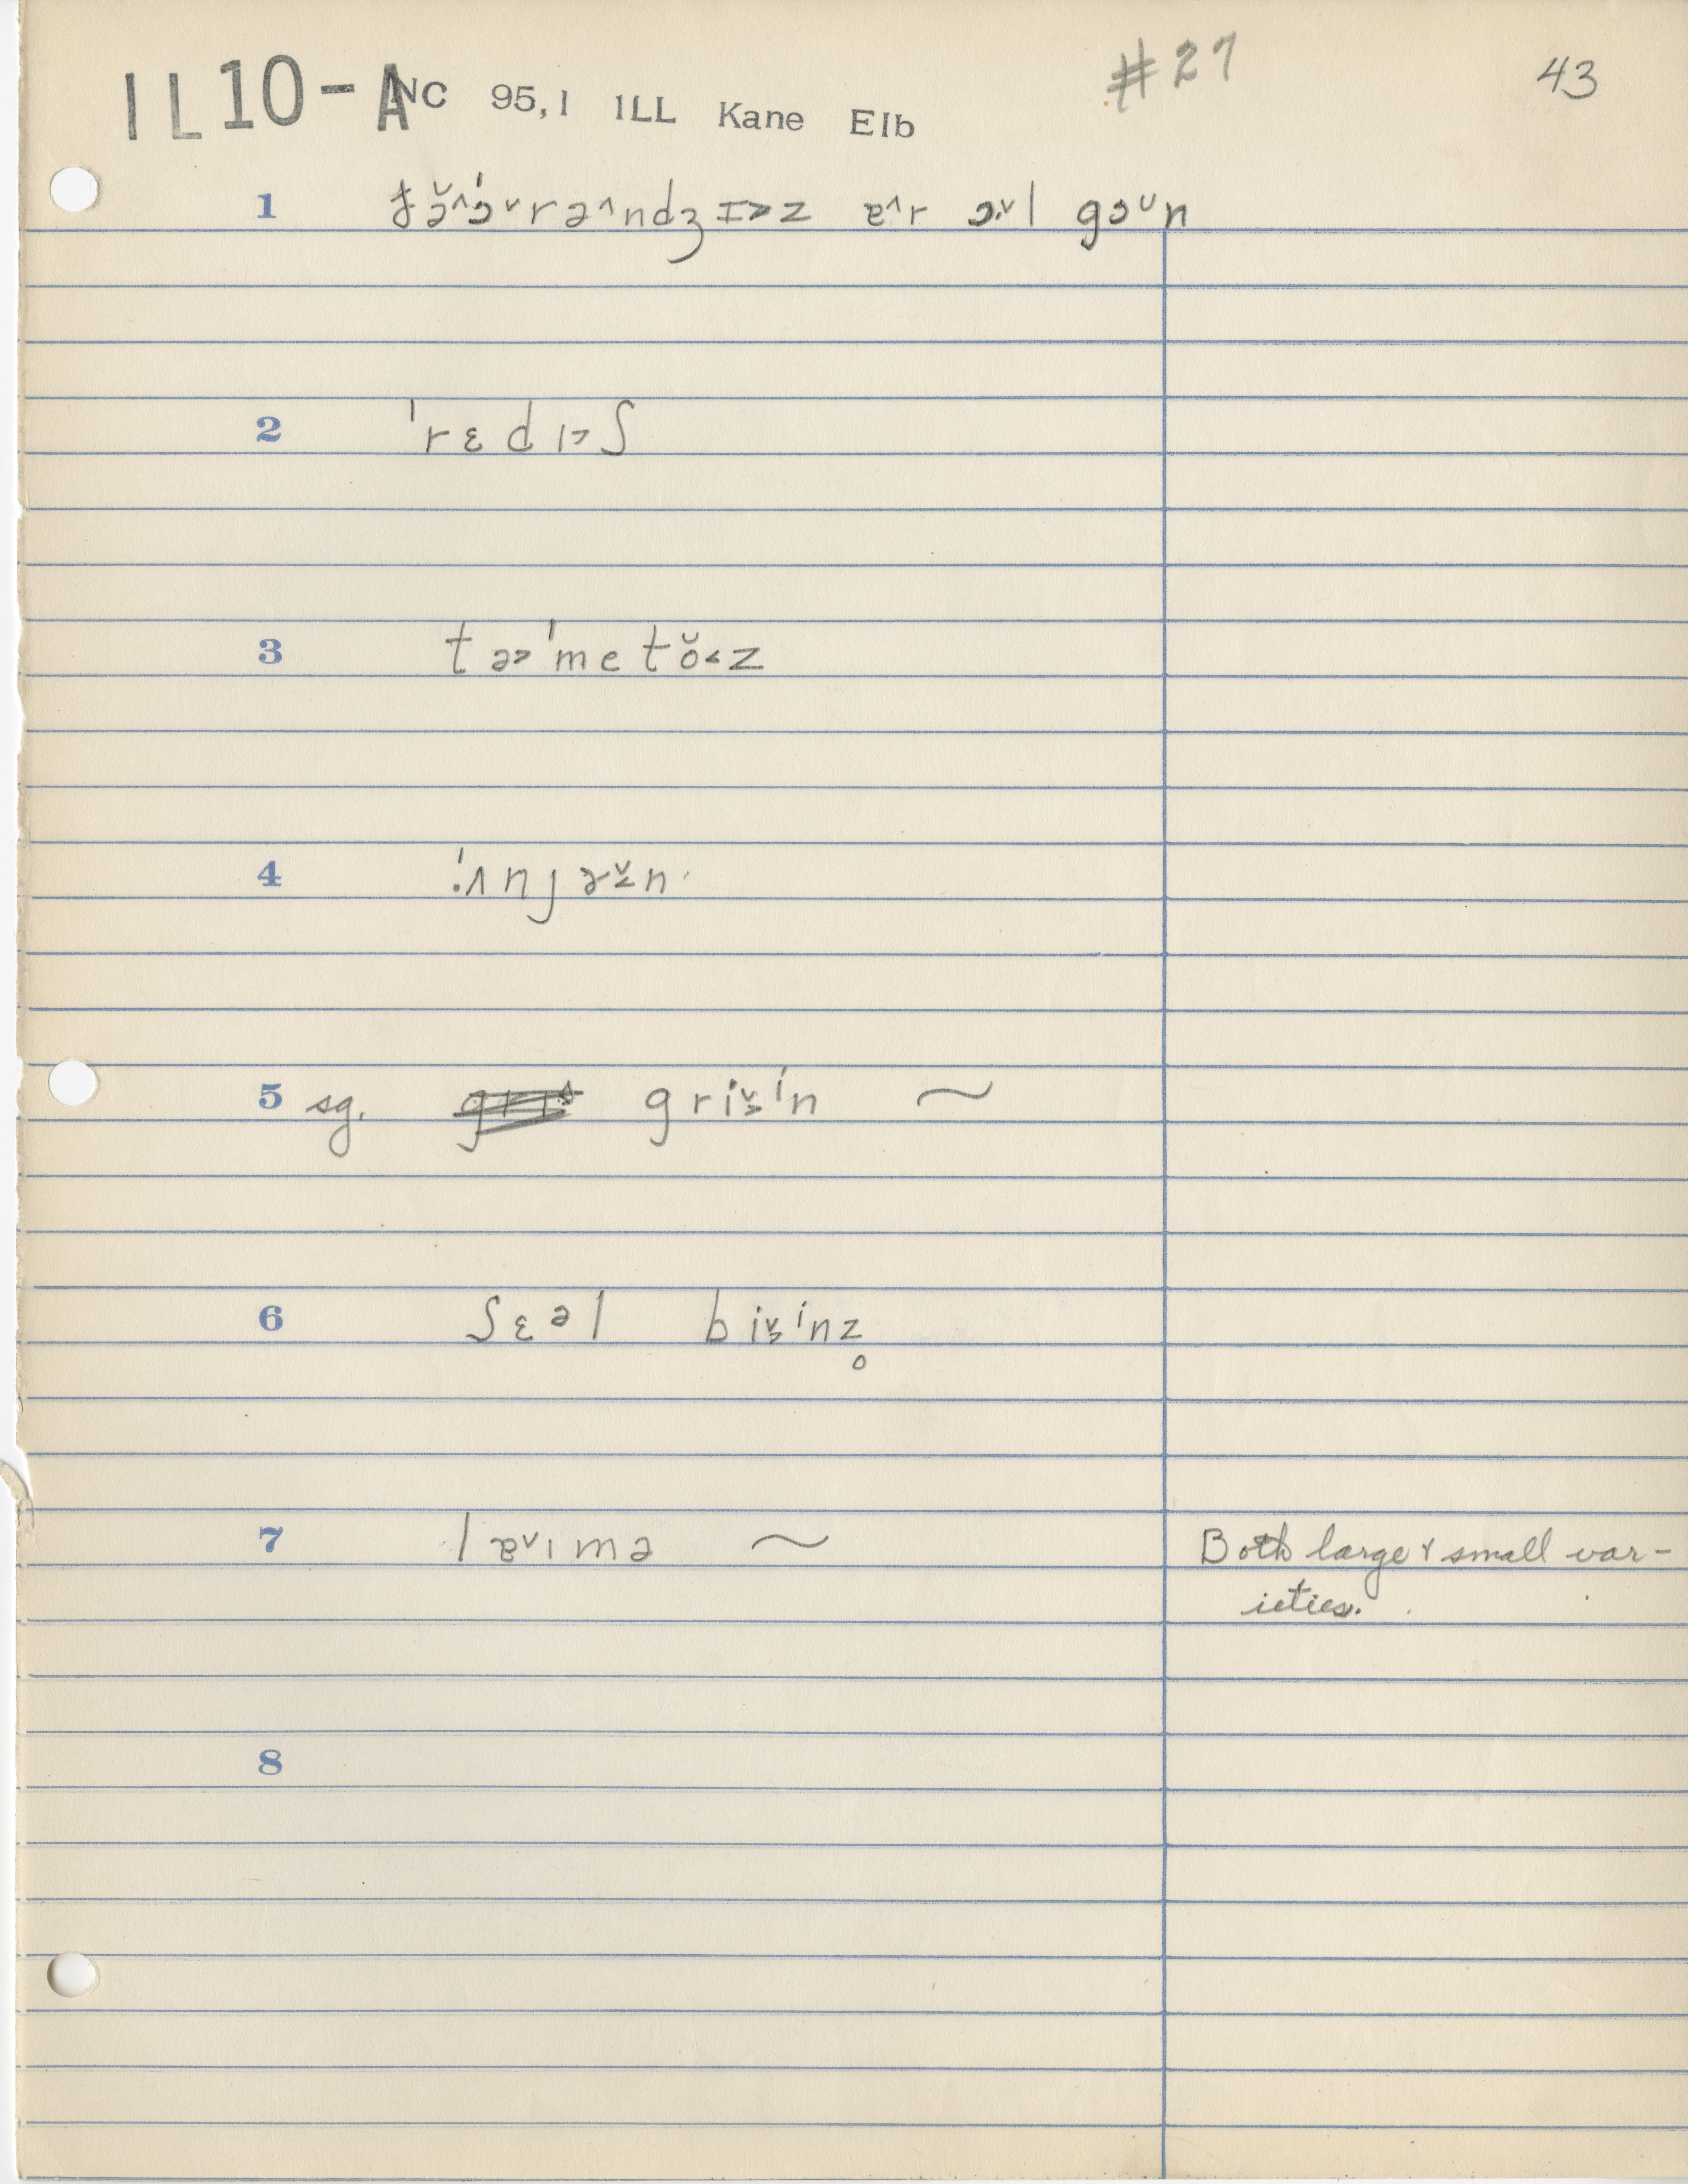 IL10-A NC 95,1 ILL Kane Elb #27 43
1 ð̵ə̆^ˈɔ˅rə^ndʒɪ>z ɐ^r ɔ.˅l gɔ˅n
2 ˈrɛdɪ>ʃ
3 tə>ˈmetŏ<z
4 ˈ.ʌnjə˞n
5 sg. gri˅>ˈin ~
6 ʃɛəl bi˅>ˈinz̥
7 lɐ˅ɪmə ~ Both large & small var-
ieties.
8